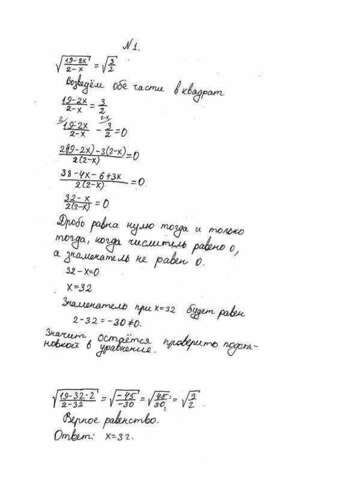 №1.
√((19-2x)/(2-x)) = √(3/2)
Возведём обе части в квадрат
(19-2x)/(2-x) = 3/2
(19-2x)/(2-x) - 3/2 = 0
(2(19-2x)-3(2-x))/(2(2-x)) = 0
(38-4x-6+3x)/(2(2-x)) = 0
(32-x)/(2(2-x)) = 0
Дробь равна нулю тогда и только
тогда, когда числитель равен 0,
а знаменатель не равен 0.
32-x=0
x=32
Знаменатель при x=32 будет равен
2-32=-30≠0.
Значит, остаётся проверить подста-
новкой в уравнение.
√((19-32·2)/(2-32)) = √((-45)/(-30)) = √(45/30) = √(3/2).
Верное равенство.
Ответ: x=32.